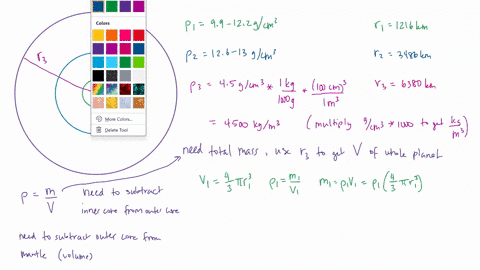 Colors
More Colors...
Delete Tool
r3
ρ1 = 9.9-12.2 g/cm³
r1 = 1216 km
ρ2 = 12.6-13 g/cm³
r2 = 3486 km
ρ3 = 4.5 g/cm³ * 1 kg/1000g * (100 cm)³/1m³
r3 = 6380 km
= 4500 kg/m³ (multiply g/cm³ * 1000 to get kg/m³)
need total mass, use r3 to get V of whole planet
V1 = 4/3 πr1³ ρ1 = m1/V1 m1 = ρ1V1 = ρ1(4/3 πr1³)
ρ = m/V
need to subtract
inner core from outer core
need to subtract outer core from
mantle (volume)